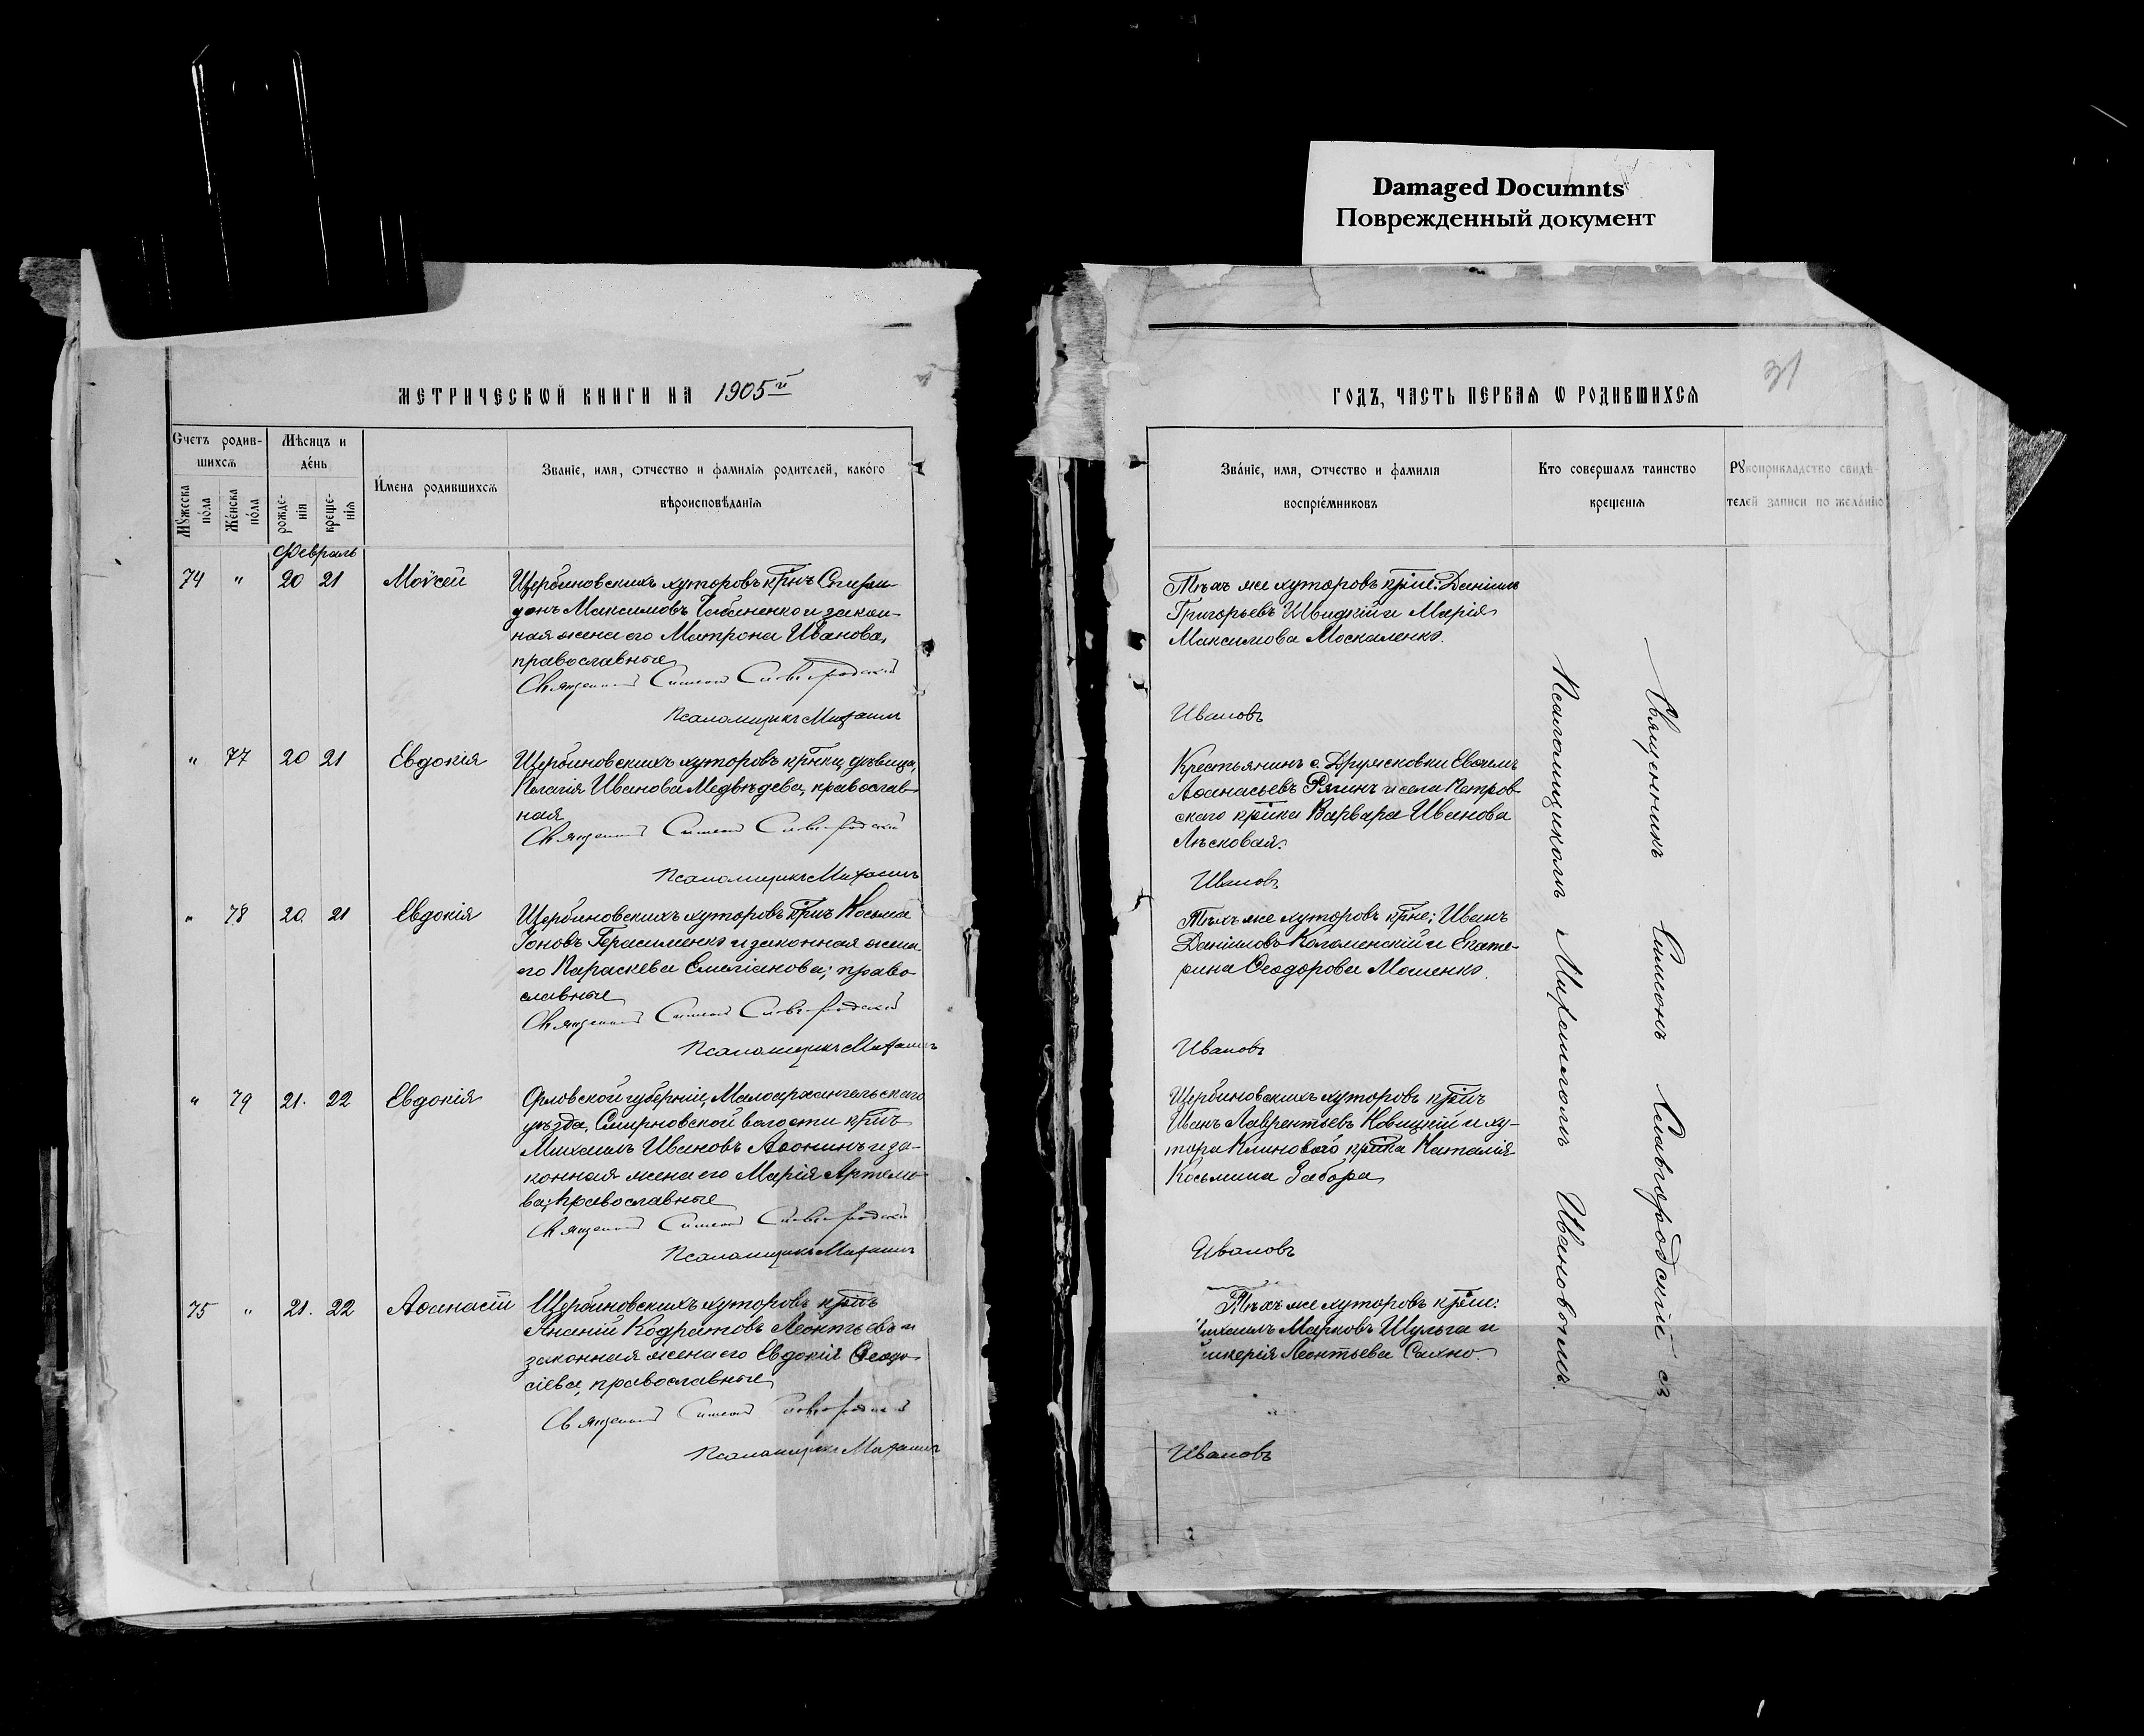 Damaged Documnts
Поврежденный документ
МЕТРИЧЕСКОЙ КНИГИ НА 1905й
Счетъ родив-
шихся
Мѣсяцъ и
день
Имена родившихся
Званіе, имя, отчество и фамилія родителей, какого
вѣроисповѣданія
Мужеска пола
Женска пола
рожде-
нія
креще-
нія
Февраль
74 " 20 21 Моѵсей
Щербиновскихъ хуторовъ крнъ Спири-
донъ Максимовъ и закон-
ная жена его Матрона Иванова,
православные
Священникъ Симеонъ Славгородскій
Псаломщикъ Михаилъ
" 77 20 21 Евдокія
Щербиновскихъ хуторовъ крнка, дѣвица,
Пелагія Иванова Медвѣдева, православ-
ная
Священникъ Симеонъ Славгородскій
Псаломщикъ Михаилъ
" 78 20. 21 Евдокія
Щербиновскихъ хуторовъ крнъ Косьма
Іоновъ Герасименко и законная жена
его Параскева Емеліанова; право-
славные
Священникъ Симеонъ Славгородскій
Псаломщикъ Михаилъ
" 79 21. 22 Евдокія
Орловской губерніи, Малоархангельскаго
уѣзда, Смирновской волости крнъ
Михаилъ Ивановъ Аѳонинъ и за-
конная жена его Марія Артемо-
ва; православные
Священникъ Симеонъ Славгородскій
Псаломщикъ Михаилъ
75 " 21. 22 Аѳанасій
Щербиновскихъ хуторовъ крнъ
Ананій Кодратовъ Леонтьевъ и
законная жена его Евдокія Ѳеодо-
сіева, православные
Священникъ Симеонъ Славгородскій
Псаломщикъ Михаилъ
31
ГОДЪ, ЧАСТЬ ПЕРВАЯ О РОДИВШИХСЯ
Званіе, имя, отчество и фамилія
воспріемниковъ
Кто совершалъ таинство
крещенія
Рукоприкладство свидѣ-
телей записи по желанію
Тѣхъ же хуторовъ крне: Даніилъ
Григорьевъ Швидкій и Марія
Максимова Москаленко.
Ивановъ
Крестьянинъ с. Дружковки Евѳимъ
Аѳанасьевъ и села Петров-
скаго крнка Варвара Иванова
Лѣсковая.
Ивановъ
Тѣхъ же хуторовъ крне: Иванъ
Даніиловъ Коломенскій и Екате-
рина Ѳеодорова Мошенко.
Ивановъ
Щербиновскихъ хуторовъ крнъ
Иванъ Лаврентьевъ Новицкій и ху-
тора Клиноваго крнка Наталія
Косьмина Забора
Ивановъ
Тѣхъ же хуторовъ крне:
ихаилъ Марковъ Шульга и
икерія Леонтьева Сахно.
Ивановъ
Священникъ Симеонъ Славгородскій съ
Псаломщикомъ Михаиломъ Ивановымъ.